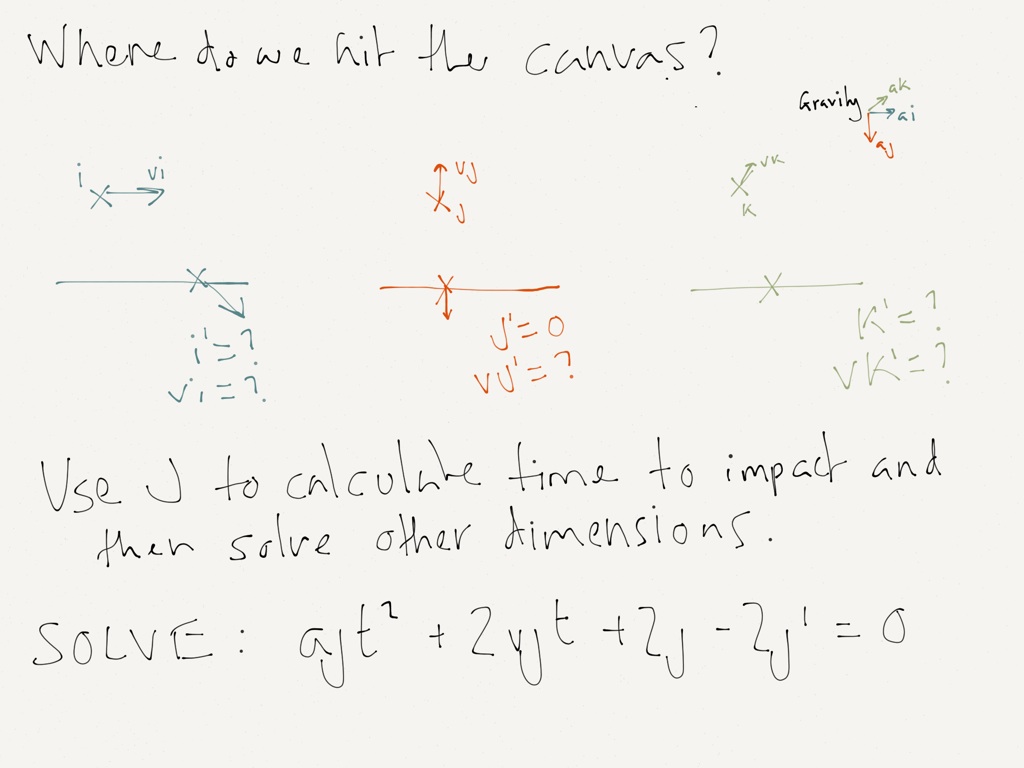 Where do we hit the canvas?
Gravity ak
ai
aj
i vi
vj
j
vk
k
i' = ?
vi = ?
j' = 0
vj' = ?
k' = ?
vk' = ?
Use J to calculate time to impact and
then solve other dimensions.
SOLVE: ajt² + 2vjt + 2j - 2j' = 0